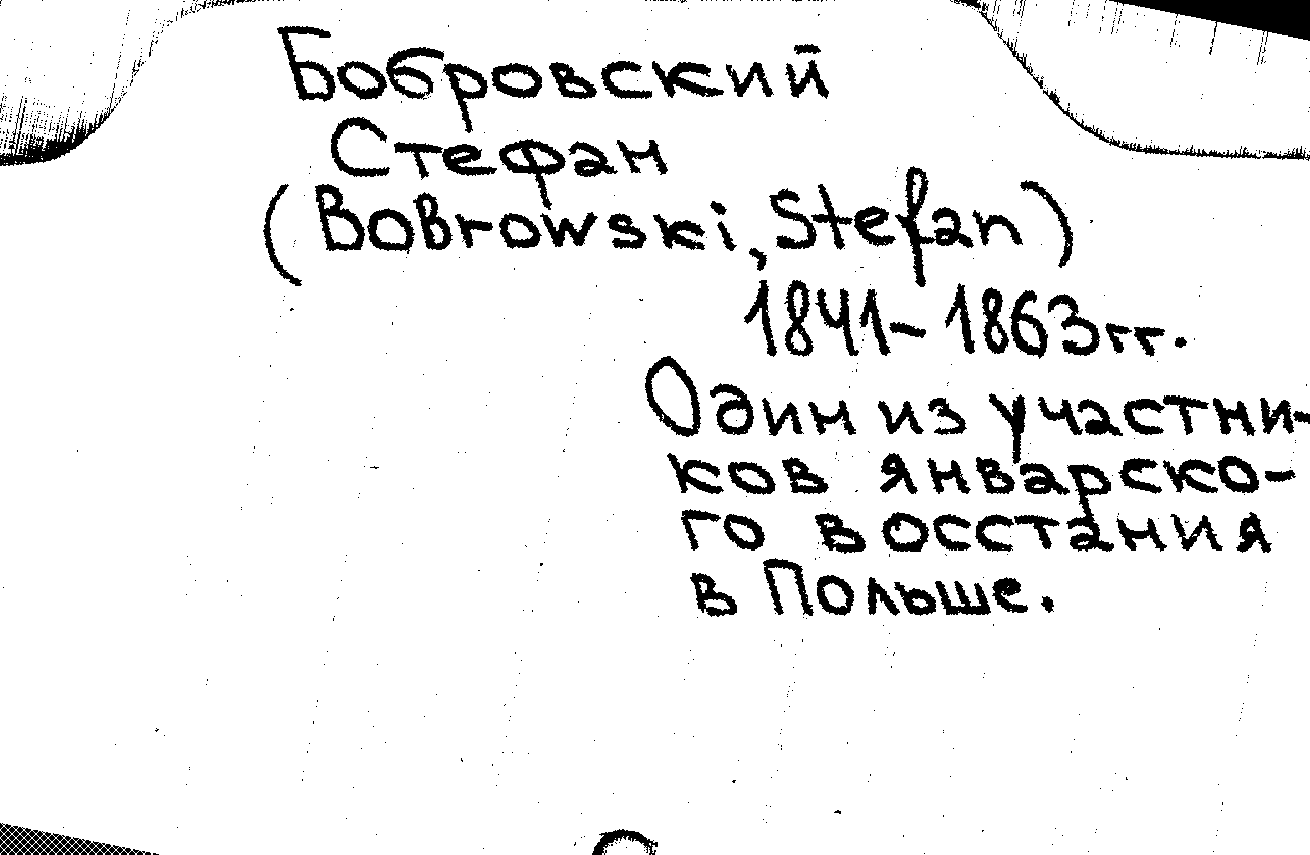 Бобровский
Стефан
(Bobrowski, Stefan)
1841-1863гг.
Один из участни-
ков январско-
го восстания
в Польше.